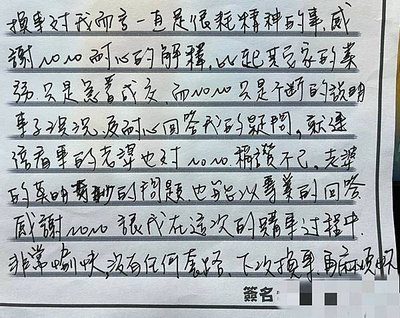 換車對我而言一直是很耗精神的事,感
謝NoNo耐心的解釋,比起其它家的業
務只是急著成交,而NoNo只是不斷的說明
車子狀況,及耐心回答我的疑問,就連
陪看車的老婆也對NoNo稱讚不已,老婆
的莫明其妙的問題,也能以專業的回答
感謝NoNo讓我在這次的購車過程中
非常愉快,沒有任何套路,下次換車再麻煩啊
簽名: